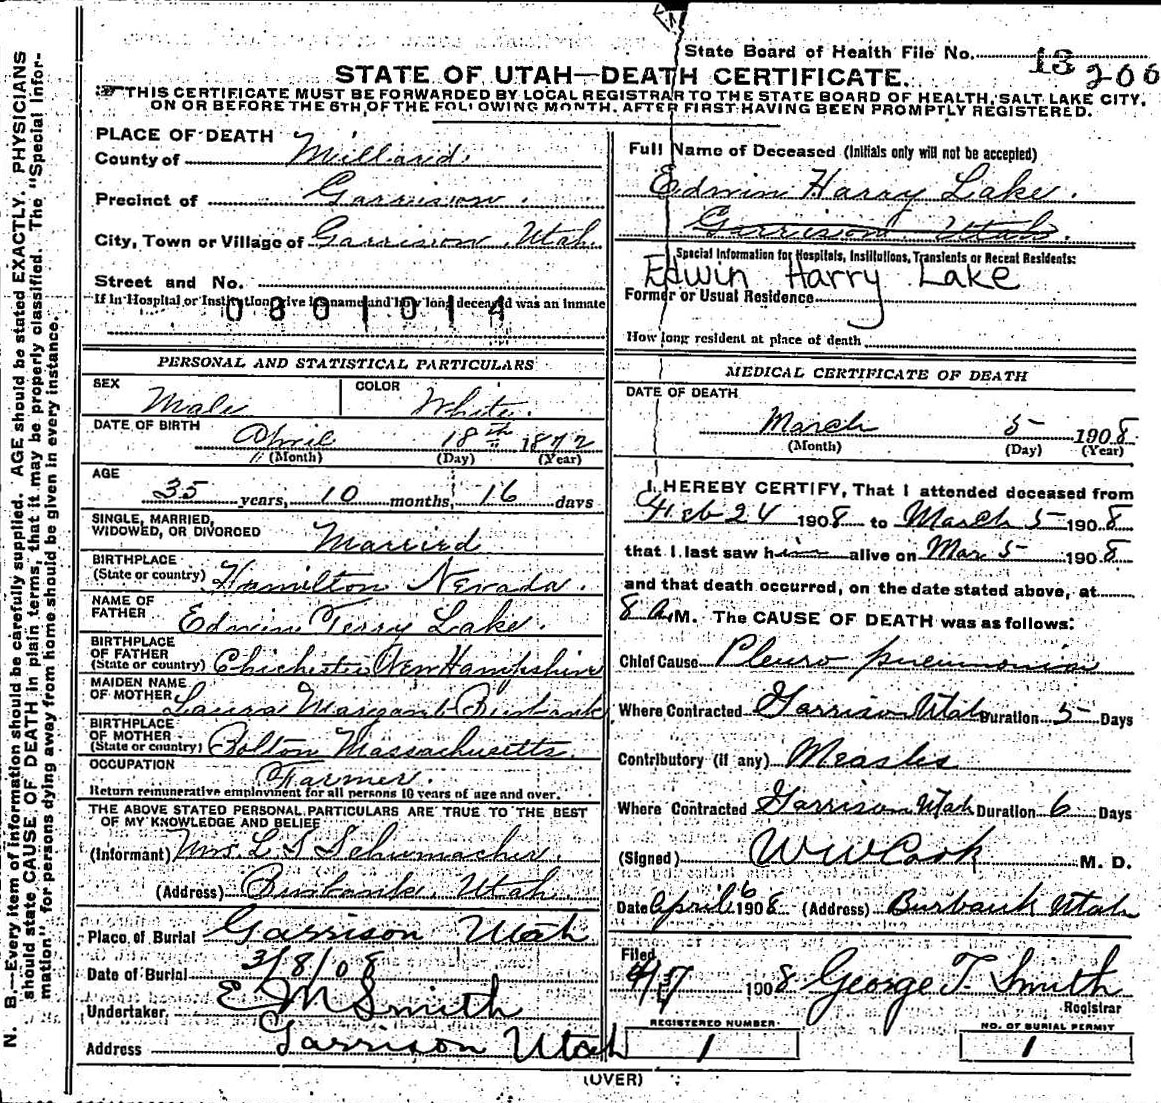 State Board of Health File No. 13 206
STATE OF UTAH—DEATH CERTIFICATE.
THIS CERTIFICATE MUST BE FORWARDED BY LOCAL REGISTRAR TO THE STATE BOARD OF HEALTH, SALT LAKE CITY,
ON OR BEFORE THE 5TH OF THE FOLLOWING MONTH, AFTER FIRST HAVING BEEN PROMPTLY REGISTERED.
N. B.—Every item of information should be carefully supplied. AGE should be stated EXACTLY. PHYSICIANS
should state CAUSE OF DEATH in plain terms, that it may be properly classified. The "Special Infor-
mation" for persons dying away from home should be given in every instance.
PLACE OF DEATH
County of Millard.
Precinct of Garrison.
City, Town or Village of Garrison Utah.
Street and No.
If in Hospital or Institution, give its name and how long deceased was an inmate
0801014
Full Name of Deceased (Initials only will not be accepted)
Edwin Harry Lake.
Garrison Utah.
Special Information for Hospitals, Institutions, Transients or Recent Residents:
Edwin Harry Lake
Former or Usual Residence
How long resident at place of death
PERSONAL AND STATISTICAL PARTICULARS
SEX Male COLOR White.
DATE OF BIRTH April 18th 1872
(Month) (Day) (Year)
AGE 35 years, 10 months, 16 days
SINGLE, MARRIED,
WIDOWED, OR DIVORCED Married
BIRTHPLACE
(State or country) Hamilton Nevada.
NAME OF
FATHER Edwin Terry Lake.
BIRTHPLACE
OF FATHER
(State or country) Chichester New Hampshire
MAIDEN NAME
OF MOTHER Laura Margant Burbank
BIRTHPLACE
OF MOTHER
(State or country) Bolton Massachusetts.
OCCUPATION Farmer.
Return remunerative employment for all persons 10 years of age and over.
THE ABOVE STATED PERSONAL PARTICULARS ARE TRUE TO THE BEST
OF MY KNOWLEDGE AND BELIEF
(Informant) Mrs. L S Schumacher.
(Address) Burbank, Utah.
Place of Burial Garrison Utah
Date of Burial 3/8/08
Undertaker E M Smith
Address Garrison Utah
MEDICAL CERTIFICATE OF DEATH
DATE OF DEATH
March 5 1908
(Month) (Day) (Year)
I HEREBY CERTIFY, That I attended deceased from
Feb 24 1908 to March 5 1908
that I last saw him alive on Mar 5 1908
and that death occurred, on the date stated above, at
8 A.M. The CAUSE OF DEATH was as follows:
Chief Cause Pleuro pneumonia
Where Contracted Garrison Utah Duration 5 Days
Contributory (if any) Measles
Where Contracted Garrison Utah Duration 6 Days
(Signed) W W Cook M. D.
Date April 6 1908 (Address) Burbank Utah
Filed 1908 George T. Smith
Registrar
REGISTERED NUMBER
1
NO. OF BURIAL PERMIT
1
(OVER)